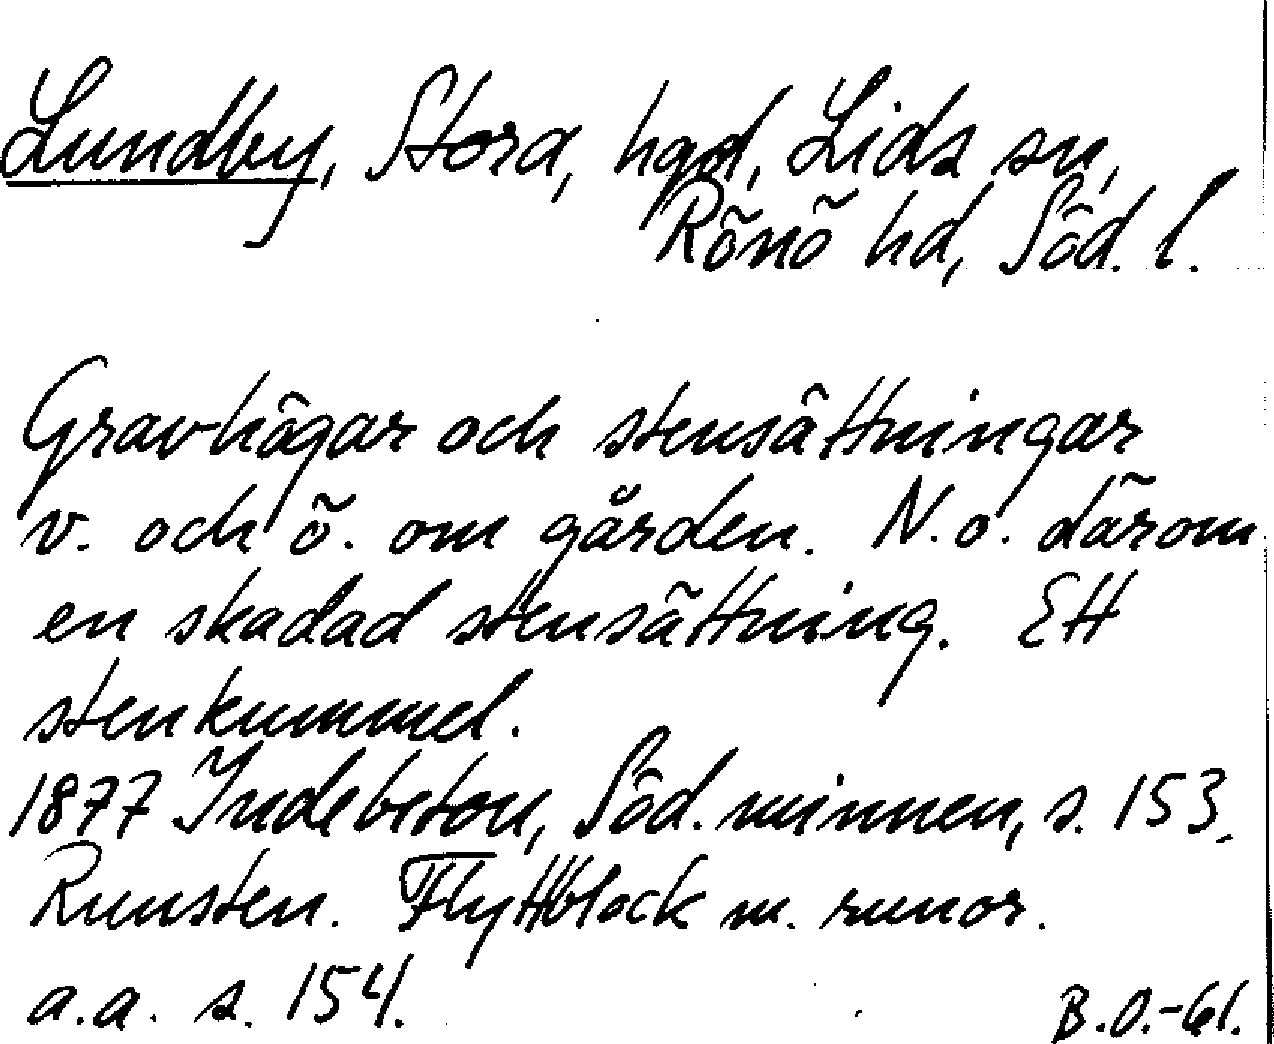 Lundby, Stora, hgd, Lids sn,
Rönö hd, Söd. l.
Gravhögar och stensättningar
v. och ö. om gården. N.o. därom
en skadad stensättning. Ett
stenkummel.
1877 Indebetou, Söd. minnen, s. 153.
Runsten. Flyttblock m. runor.
a.a. s. 154.
B.O.-61.